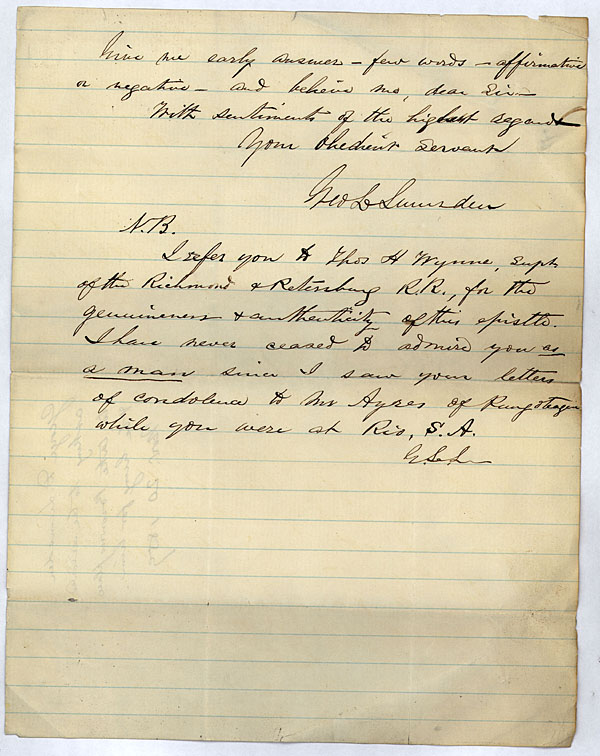 Give me early answer – few words – affirmative
or negative – and believe me, dear Sir –
With sentiments of the highest regard
Your obedient Servant
Geo L Lumsden
N.B.
I refer you to Thos H Wynne, Supt
of the Richmond & Petersburg R.R., for the
genuineness & authenticity of this epistle.
I have never ceased to admire you as
a man since I saw your letters
of condolence to Mr Ayres of
while you were at Rio, S.A.
G.L.L